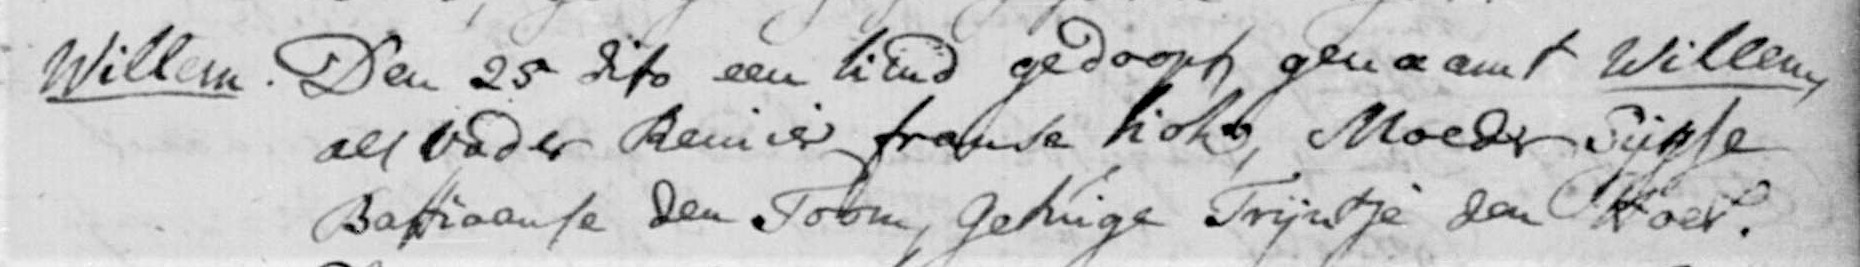 Willem. Den 25 dito een kind gedoopt genaamt Willem,
als vader Reinier franse kok, Moeder
Bastiaanse den Toom, getuige Trijntje den